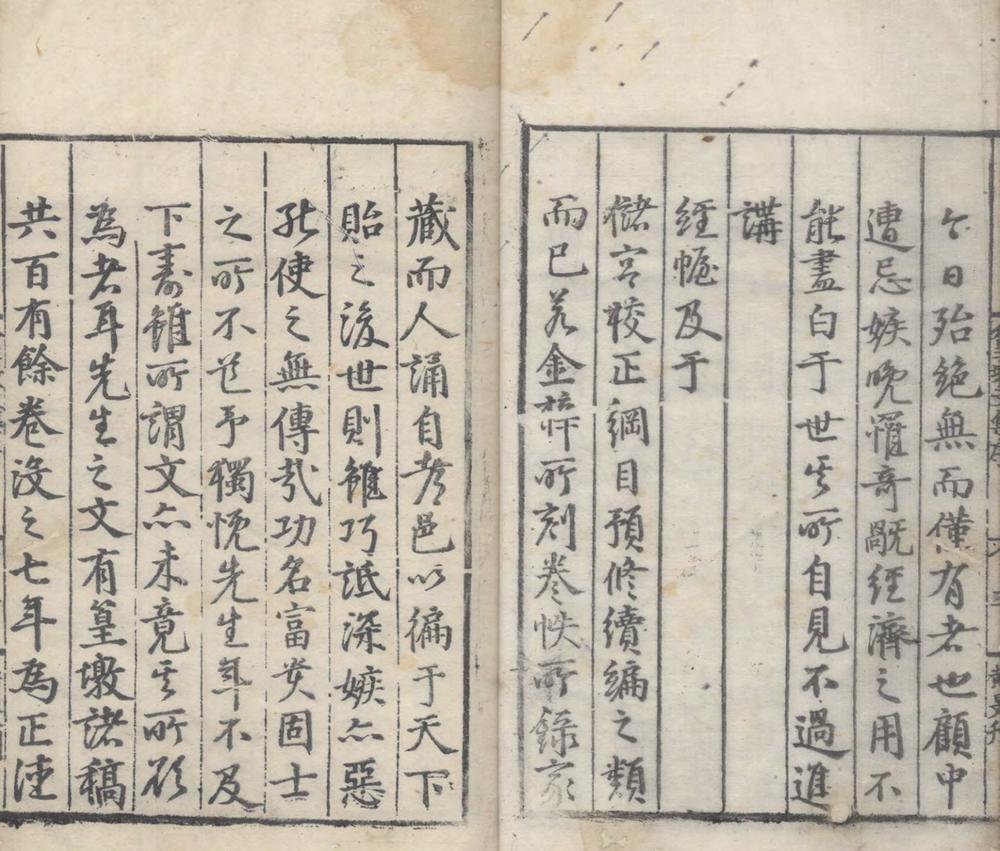 今日殆絕無而僅有者也顧中
遭忌嫉晚罹奇䰟經濟之用不
能盡白于世其所自見不過進
講
經幄及于
儲宮校正綱目預修續編之類
而已若金梓所刻卷帙所錄家
藏而人誦自考邑以徧于天下
貽之後世則雖巧詆深嫉亦惡
能使之無傳哉功名富貴固士
之所不迄予獨慨先生年不及
下壽雖所謂文亦未竟其所欲
為者耳先生之文有篁墩諸稿
共百有餘卷沒之七年為正德